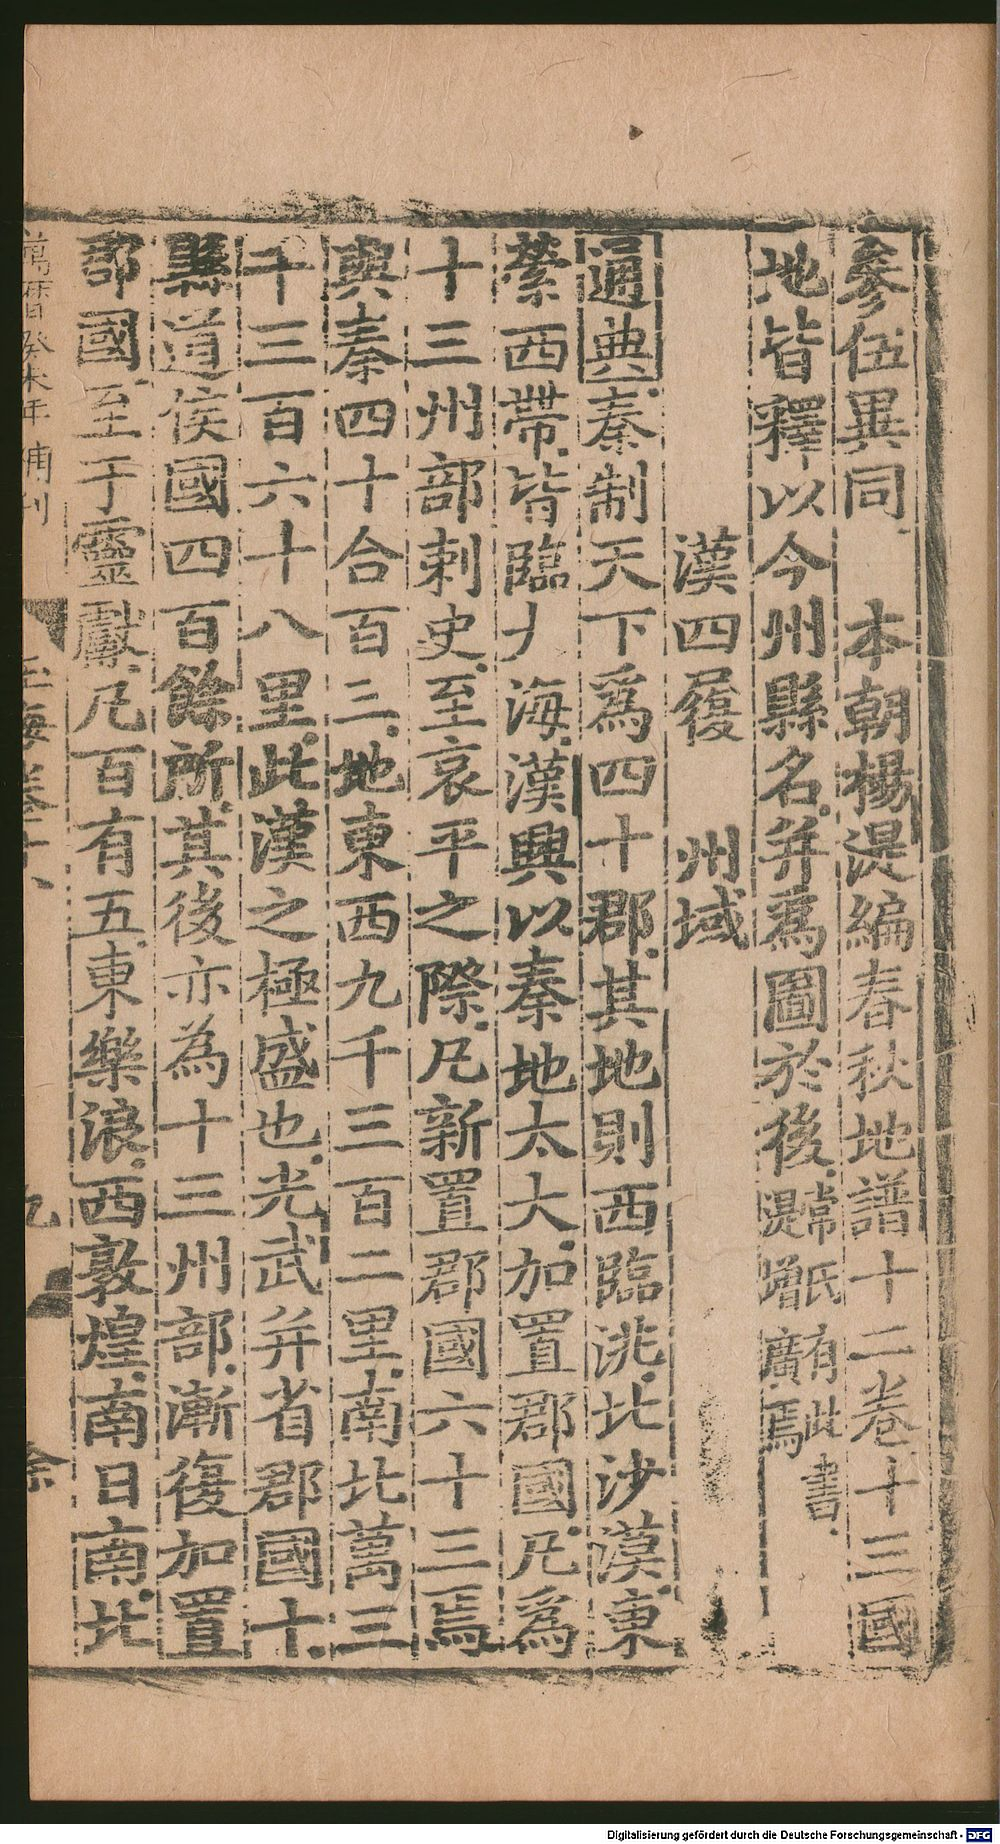 參伍異同　本朝楊湜編春秋地譜十二卷十三國
地皆釋以今州縣名并爲圖於後常氏有此書湜增廣焉
漢四履　州域
通典秦制天下爲四十郡其地則西臨洮北沙漠東
縈西帶皆臨大海漢興以秦地太大加置郡國凡爲
十三州部刺史至哀平之際凡新置郡國六十三焉
與秦四十合百三地東西九千三百二里南北萬三
千三百六十八里此漢之極盛也光武并省郡國十
縣道侯國四百餘所其後亦為十三州部漸復加置
郡國至于靈獻凡百有五東樂浪西敦煌南日南北
萬曆癸未年補刊
玉海卷十八
九
余
Digitalisierung gefördert durch die Deutsche Forschungsgemeinschaft - DFG